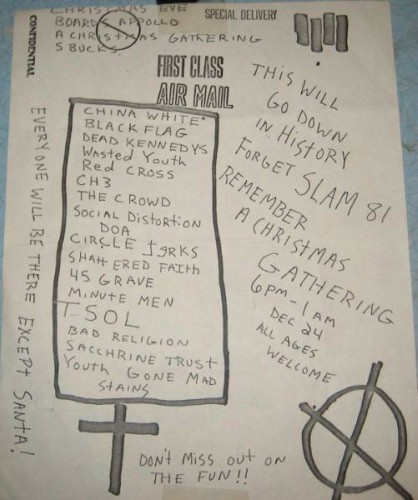 CHRISTMAS EVE
BOARDS APPOLLO
A CHRISTMAS GATHERING
5 BUCKS
SPECIAL DELIVERY
CONFIDENTIAL
FIRST CLASS
AIR MAIL
CHINA WHITE
BLACK FLAG
DEAD KENNEDYS
Wasted Youth
Red CROSS
CH3
THE CROWD
SOCIAL DISTORTION
DOA
CIRCLE JERKS
SHATTERED FAITH
45 GRAVE
MINUTE MEN
TSOL
BAD RELIGION
SACCHRINE TRUST
Youth GONE MAD
STAINS
THIS WILL
GO DOWN
IN HISTORY
FORGET SLAM 81
REMEMBER
A CHRISTMAS
GATHERING
6PM - 1AM
DEC 24
ALL AGES
WELCOME
EVERYONE WILL BE THERE EXCEPT SANTA!
DON'T MISS OUT ON
THE FUN!!